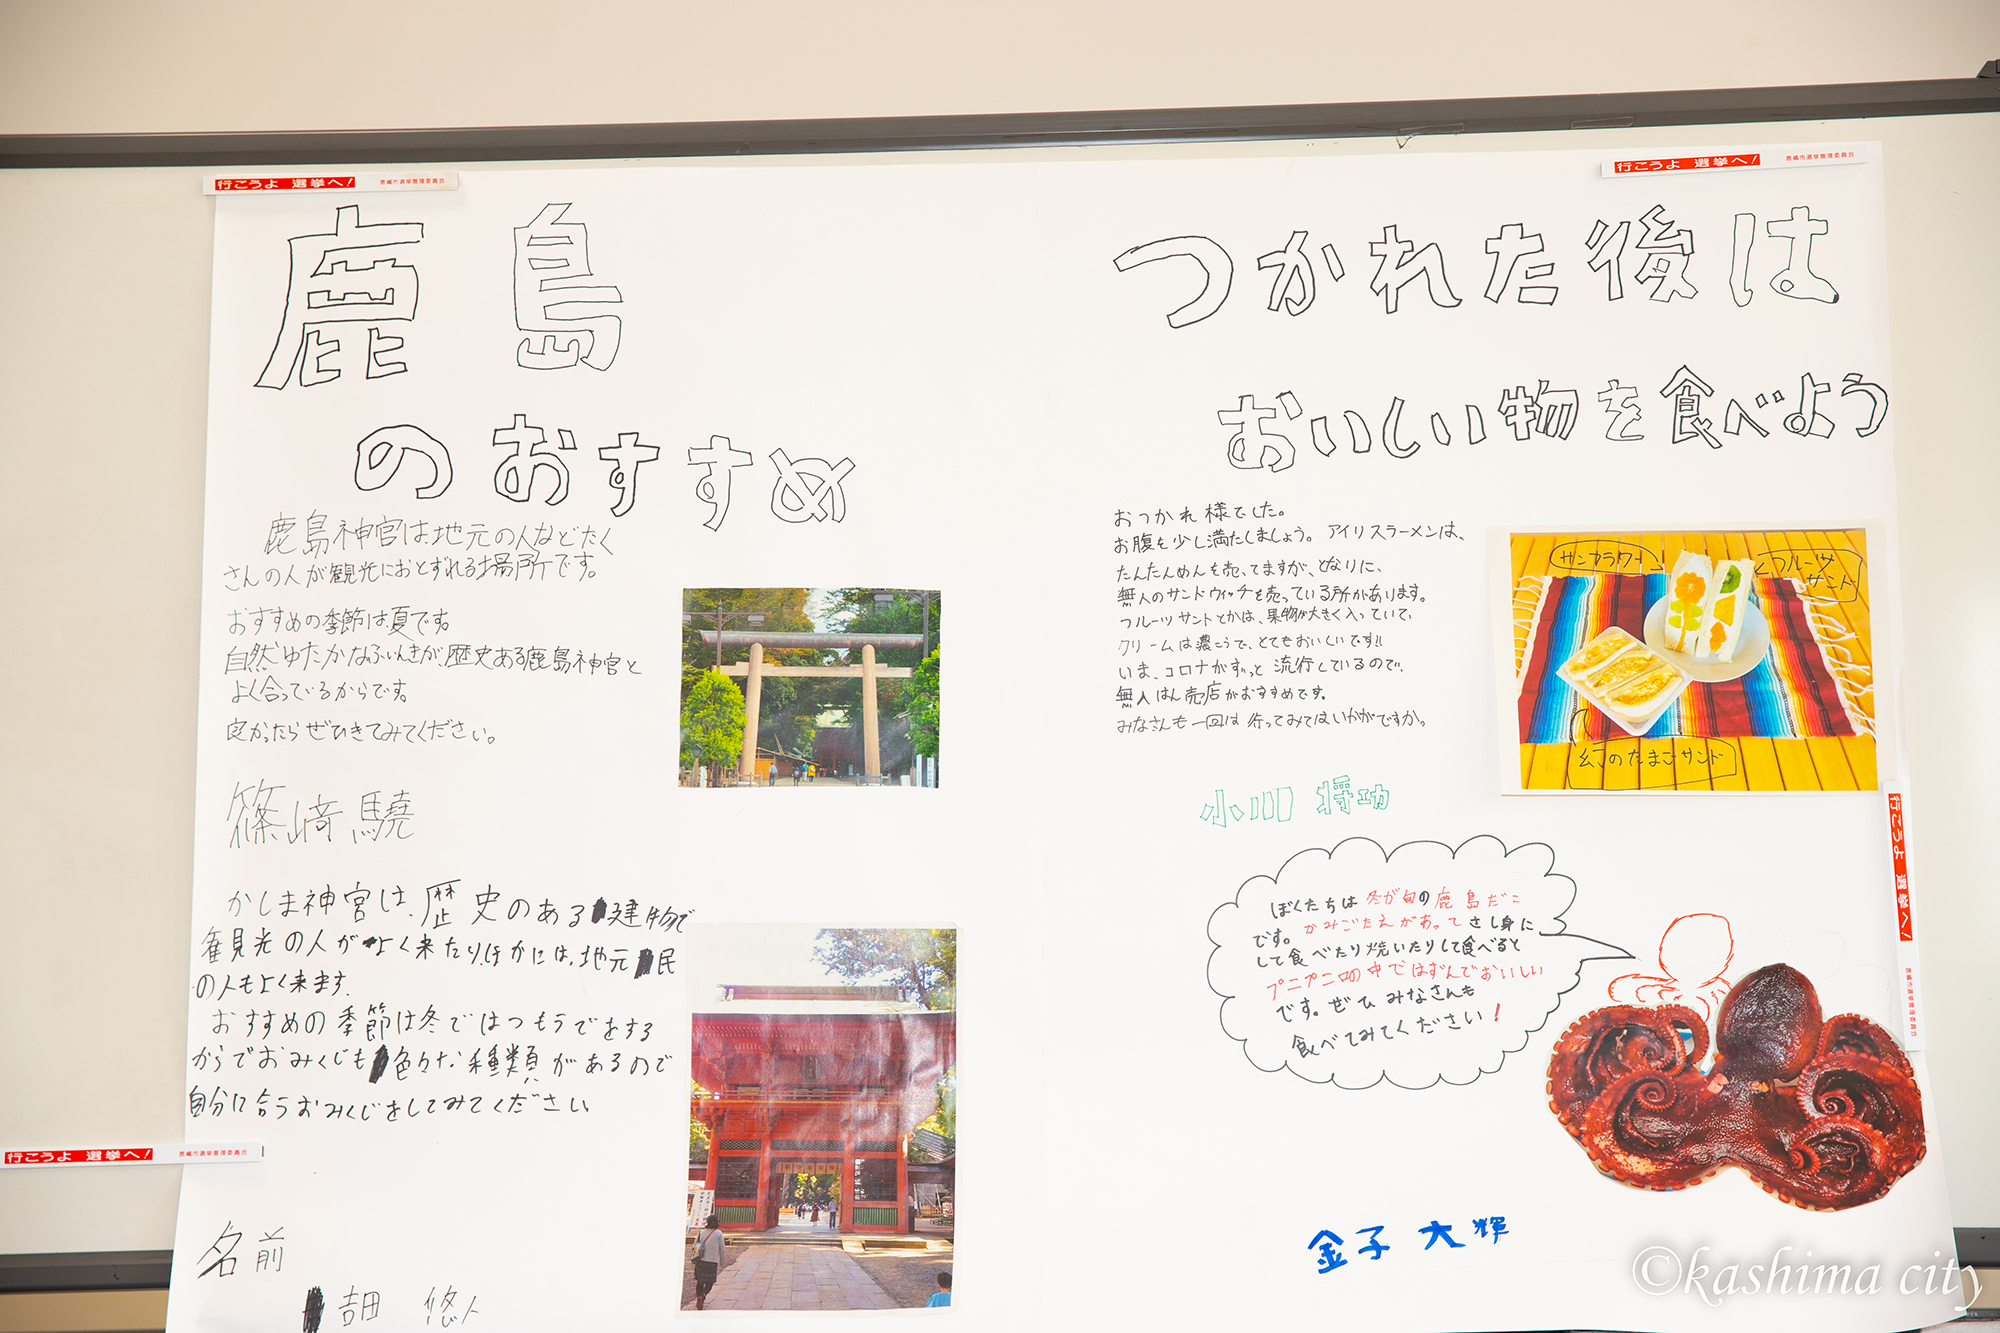 行こうよ 選挙へ!
鹿嶋市選挙管理委員会
鹿島
のおすすめ
鹿島神宮は地元の人などたく
さんの人が観光におとずれる場所です。
おすすめの季節は夏です。
自然ゆたかなふいんきが歴史ある鹿島神宮と
よく合っているからです。
良かったらぜひきてみてください。
篠﨑 驍
かしま神宮は、歴史のある建物で
観光の人がよく来たり、ほかには、地元民
の人もよく来ます。
おすすめの季節は冬ではつもうでをする
からでおみくじも色々な種類があるので
自分に合うおみくじをしてみてください
名前
吉田 悠人
行こうよ 選挙へ!
鹿嶋市選挙管理委員会
行こうよ 選挙へ!
鹿嶋市選挙管理委員会
つかれた後は
おいしい物を食べよう
おつかれ様でした。
お腹を少し満たしましょう。アイリスラーメンは、
たんたんめんを売ってますが、となりに、
無人のサンドウィッチを売っている所があります。
フルーツサントとかは、果物が大きく入っていて、
クリームは濃こうで、とてもおいしいです!!
いま、コロナがずっと流行しているので、
無人はん売店がおすすめです。
みなさんも一回は行ってみてはいかがですか。
サンフラワー
フルーツ
サンド
幻のたまごサンド
小川 将功
ぼくたちは冬が旬の鹿島だこ
です。かみごたえがあってさし身に
して食べたり焼いたりして食べると
プニプニ口の中ではずんでおいしい
です。ぜひみなさんも
食べてみてください!
金子 大輝
行こうよ 選挙へ!
鹿嶋市選挙管理委員会
©kashima city